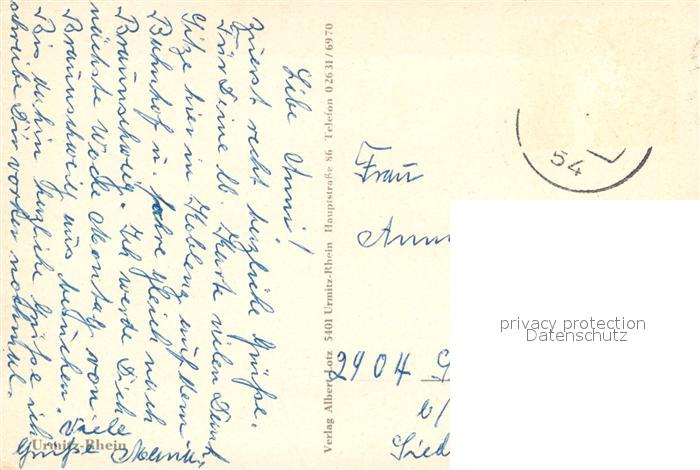 Liebe Anni!
Zuerst recht herzliche Grüße.
Für Deine lb. Karte vielen Dank
Sitze hier in Koblenz auf dem
Bahnhof u. fahre gleich nach
Braunschweig. Ich werde Dich
nächste Woche Montag von
Braunschweig aus besuchen.
Bis dahin herzliche Grüße ich
schreibe Dir vorher nochmal.
Viele
Grüße
Urmitz-Rhein
Verlag Albert Lotz 5401 Urmitz-Rhein Hauptstraße 86 Telefon 02631/6970
54
Frau
Anni
2904
b/
Sied
privacy protection
Datenschutz